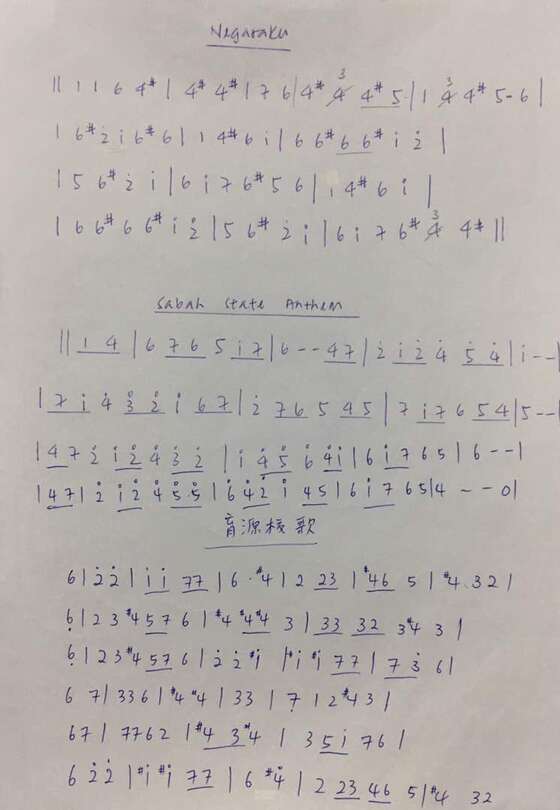 Negaraku
|| 1 1 6 4# | 4# 4# | 7 6 | 4# 3 4# 5 | 1 3 4# 5-6 |
1 6# 2̇ i 6# 6 | 1 4# 6 i | 6 6# 6 6# i 2̇ |
| 5 6# 2̇ i | 6 i 7 6# 5 6 | i 4# 6 i |
| 6 6# 6 6# i 2̇ | 5 6# 2̇ i | 6 i 7 6# 3 4# ||
Sabah State Anthem
|| 1 4 | 6 7 6 5 i 7 | 6 - - 4 7 | 2̇ i 2̇ 4̇ 5̇ 4̇ | i - - |
| 7 i 4̇ 3̇ 2̇ i 6 7 | 2̇ 7 6 5 4 5 | 7 i 7 6 5 4 | 5 - - |
| 4 7 2̇ i 2̇ 4̇ 3̇ 2̇ | i 4̇ 5̇ 6̇ 4̇ i | 6 i 7 6 5 | 6 - - |
| 4 7 | 2̇ i 2̇ 4̇ 5̇ 5̇ | 6̇ 4̇ 2̇ i 4 5 | 6 i 7 6 5 | 4 - - 0 |
育源校歌
6 | 2̇ 2̇ | i i 7 7 | 6 · #4 | 2 2 3 | #4 6 5 | #4 . 3 2 |
6̣ | 2 3 #4 5 7 6 | #4 #4 #4 3 | 3 3 3 2 3 #4 3 |
6̣ | 2 3 #4 5 7 6 | 2̇ 2̇ #i | #i #i 7 7 | 7 3̇ 6 |
6 7 | 3 3 6 | #4 #4 | 3 3 | 7̣ | 2 #4 3 |
6 7 | 7 7 6 2 | #4 3 #4 | 3 5 i 7 6 |
6 2̇ 2̇ | #i #i 7 7 | 6 #4̇ | 2 2 3 4 6 5 | #4 3 2